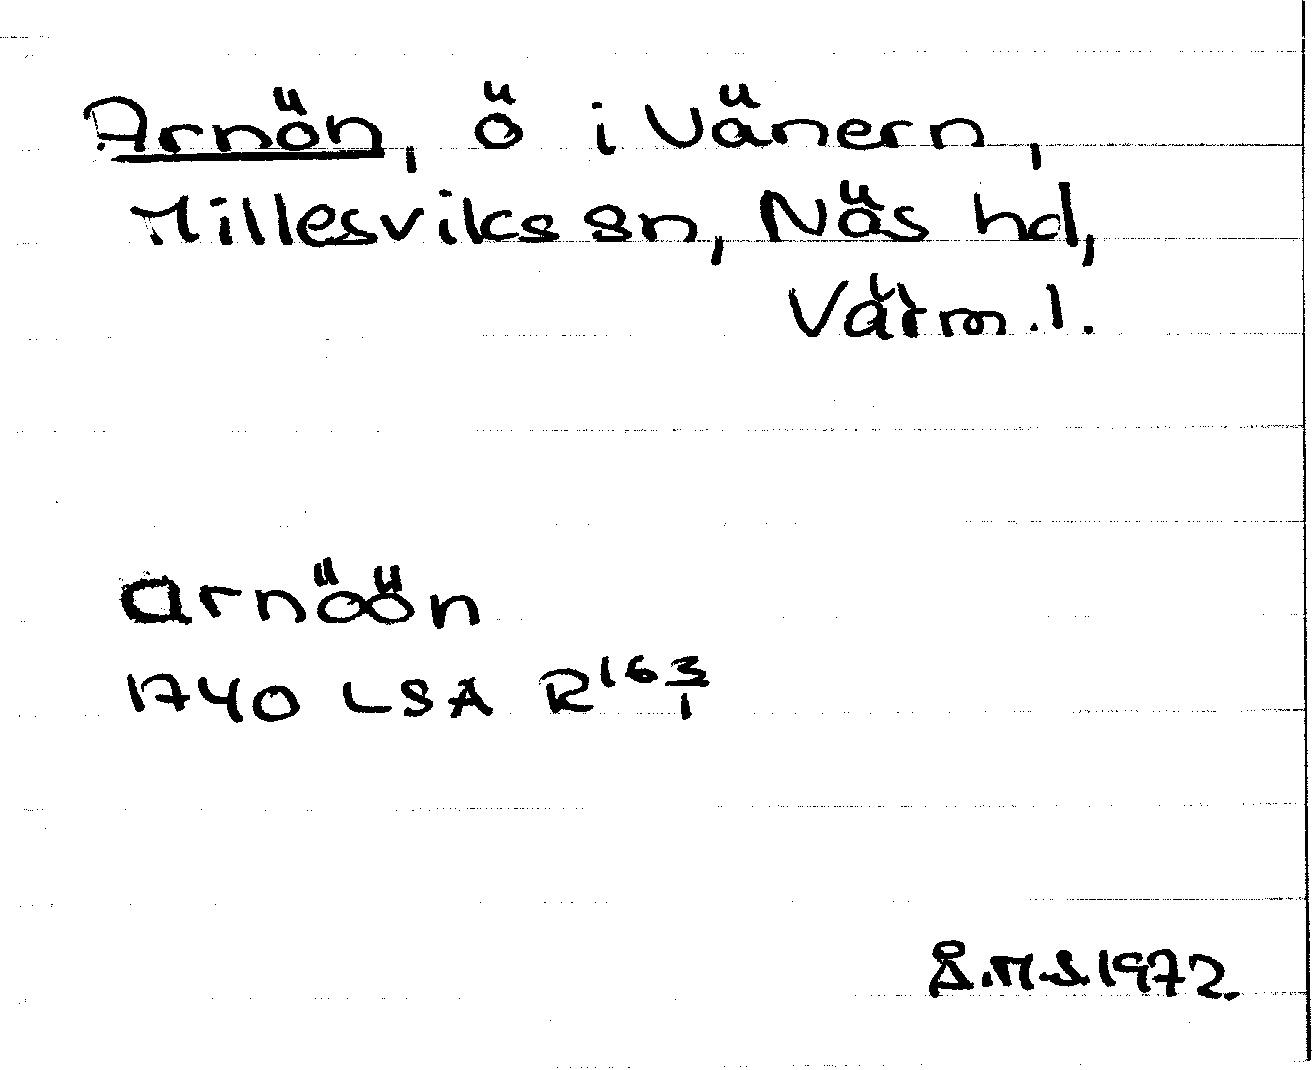 Arnön, ö i Vänern,
Millesviks sn, Näs hd,
Värm.l.
arnöön
1740 LSA R16 3/1
Å.M.S.1972.